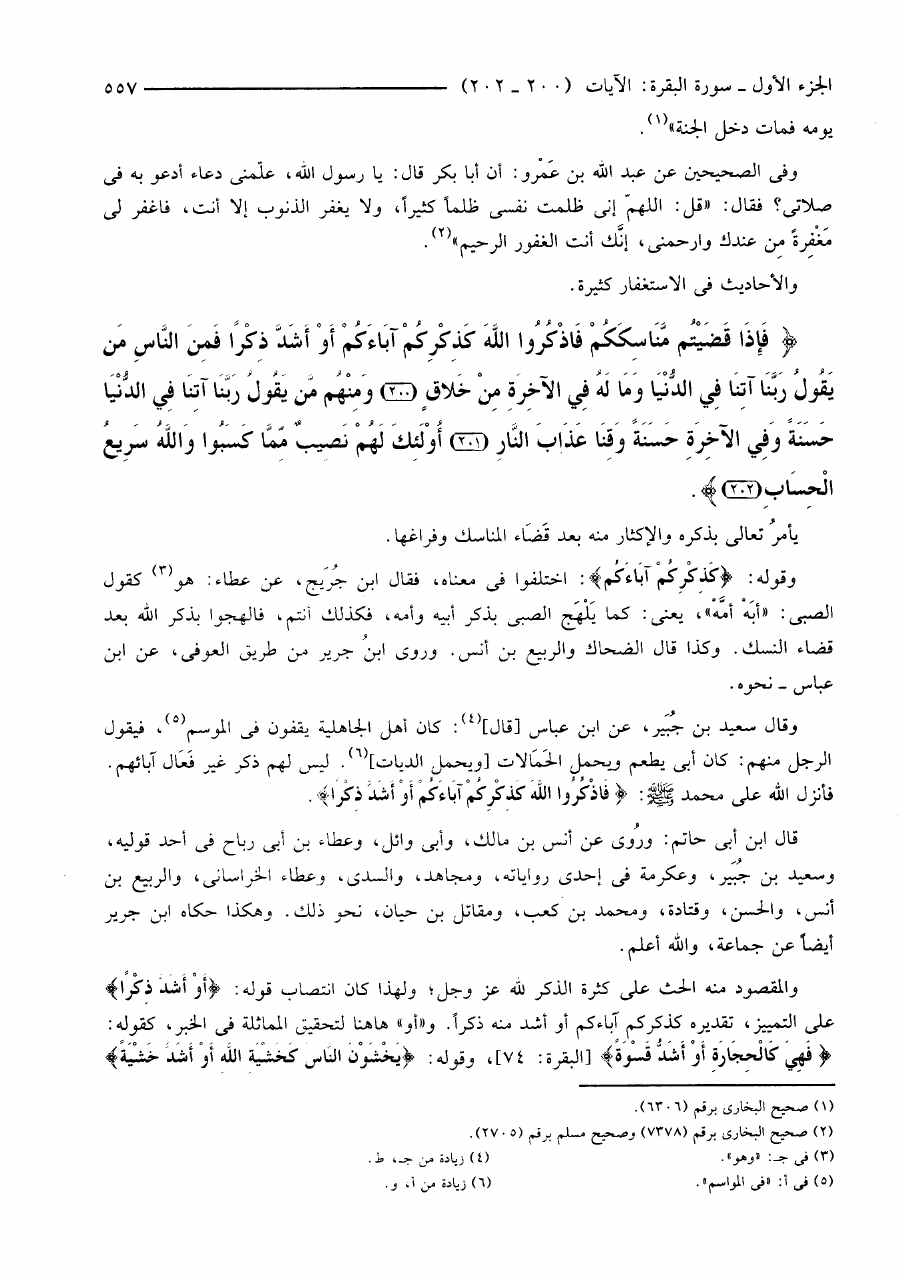 الجزء الأول ـ سورة البقرة: الآيات (٢٠٠ ـ ٢٠٢) ٥٥٧
يومه فمات دخل الجنة»(١).
وفى الصحيحين عن عبد الله بن عَمْرو: أن أبا بكر قال: يا رسول الله، علّمنى دعاء أدعو به فى
صلاتى؟ فقال: «قل: اللهمّ إنى ظلمت نفسى ظلماً كثيراً، ولا يغفر الذنوب إلا أنت، فاغفر لى
مَغْفِرةً مِن عندك وارحمنى، إنَّك أنت الغفور الرحيم»(٢).
والأحاديث فى الاستغفار كثيرة.
﴿ فَإِذَا قَضَيْتُم مَّنَاسِكَكُمْ فَاذْكُرُوا اللَّهَ كَذِكْرِكُمْ آبَاءَكُمْ أَوْ أَشَدَّ ذِكْرًا فَمِنَ النَّاسِ مَن
يَقُولُ رَبَّنَا آتِنَا فِي الدُّنْيَا وَمَا لَهُ فِي الآخِرَةِ مِنْ خَلاقٍ (٢٠٠) وَمِنْهُم مَّن يَقُولُ رَبَّنَا آتِنَا فِي الدُّنْيَا
حَسَنَةً وَفِي الآخِرَةِ حَسَنَةً وَقِنَا عَذَابَ النَّارِ (٢٠١) أُوْلَئِكَ لَهُمْ نَصِيبٌ مِّمَّا كَسَبُوا وَاللَّهُ سَرِيعُ
الْحِسَابِ (٢٠٢)﴾.
يأمرُ تعالى بذكره والإكثار منه بعد قَضَاء المناسك وفراغها.
وقوله: ﴿كَذِكْرِكُمْ آبَاءَكُم﴾: اختلفوا فى معناه، فقال ابن جُرَيج، عن عطاء: هو(٣) كقول
الصبى: «أبَهْ أمَّهْ»، يعنى: كما يَلْهَج الصبى بذكر أبيه وأمه، فكذلك أنتم، فالهجوا بذكر الله بعد
قضاء النسك. وكذا قال الضحاك والربيع بن أنس. وروى ابنُ جرير من طريق العوفى، عن ابن
عباس ـ نحوه.
وقال سعيد بن جُبَير، عن ابن عباس [قال](٤): كان أهل الجاهلية يقفون فى الموسم(٥)، فيقول
الرجل منهم: كان أبى يطعم ويحمل الحَمَالات [ويحمل الديات](٦). ليس لهم ذكر غير فَعَال آبائهم.
فأنزل الله على محمد ﷺ: ﴿ فَاذْكُرُوا اللَّهَ كَذِكْرِكُمْ آبَاءَكُمْ أَوْ أَشَدَّ ذِكْرًا﴾.
قال ابن أبى حاتم: ورُوى عن أنس بن مالك، وأبى وائل، وعطاء بن أبى رباح فى أحد قوليه،
وسعيد بن جُبَير، وعكرمة فى إحدى رواياته، ومجاهد، والسدى، وعطاء الخراسانى، والربيع بن
أنس، والحسن، وقتادة، ومحمد بن كعب، ومقاتل بن حيان، نحو ذلك. وهكذا حكاه ابن جرير
أيضاً عن جماعة، والله أعلم.
والمقصود منه الحث على كثرة الذكر لله عز وجل؛ ولهذا كان انتصاب قوله: ﴿أَوْ أَشَدَّ ذِكْرًا﴾
على التمييز، تقديره كذكركم آباءكم أو أشد منه ذكراً. و«أو» هاهنا لتحقيق المماثلة فى الخبر، كقوله:
﴿ فَهِيَ كَالْحِجَارَةِ أَوْ أَشَدُّ قَسْوَةً﴾ [البقرة: ٧٤]، وقوله: ﴿يَخْشَوْنَ النَّاسَ كَخَشْيَةِ اللَّهِ أَوْ أَشَدَّ خَشْيَةً﴾
(١) صحيح البخارى برقم (٦٣٠٦).
(٢) صحيح البخارى برقم (٧٣٧٨) وصحيح مسلم برقم (٢٧٠٥).
(٣) فى جـ: «وهو». (٤) زيادة من جـ، ط.
(٥) فى أ: «فى المواسم». (٦) زيادة من أ، و.